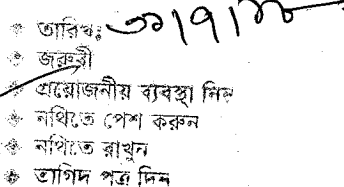 তারিখঃ
জরুরী
প্রয়োজনীয় ব্যবস্থা নিন
নথিতে পেশ করুন
নথিতে রাখুন
তাগিদ পত্র দিন